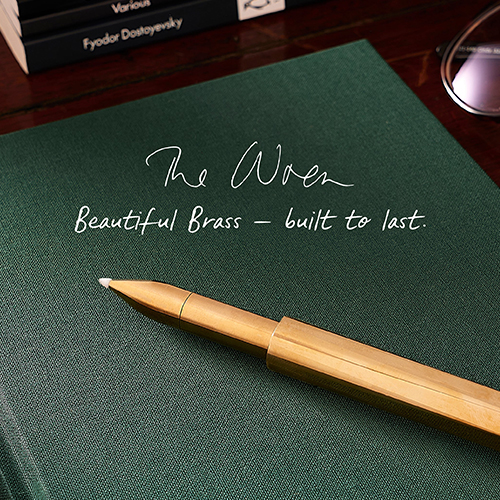 Various
Fyodor Dostoyevsky
The Wren
Beautiful Brass – built to last.